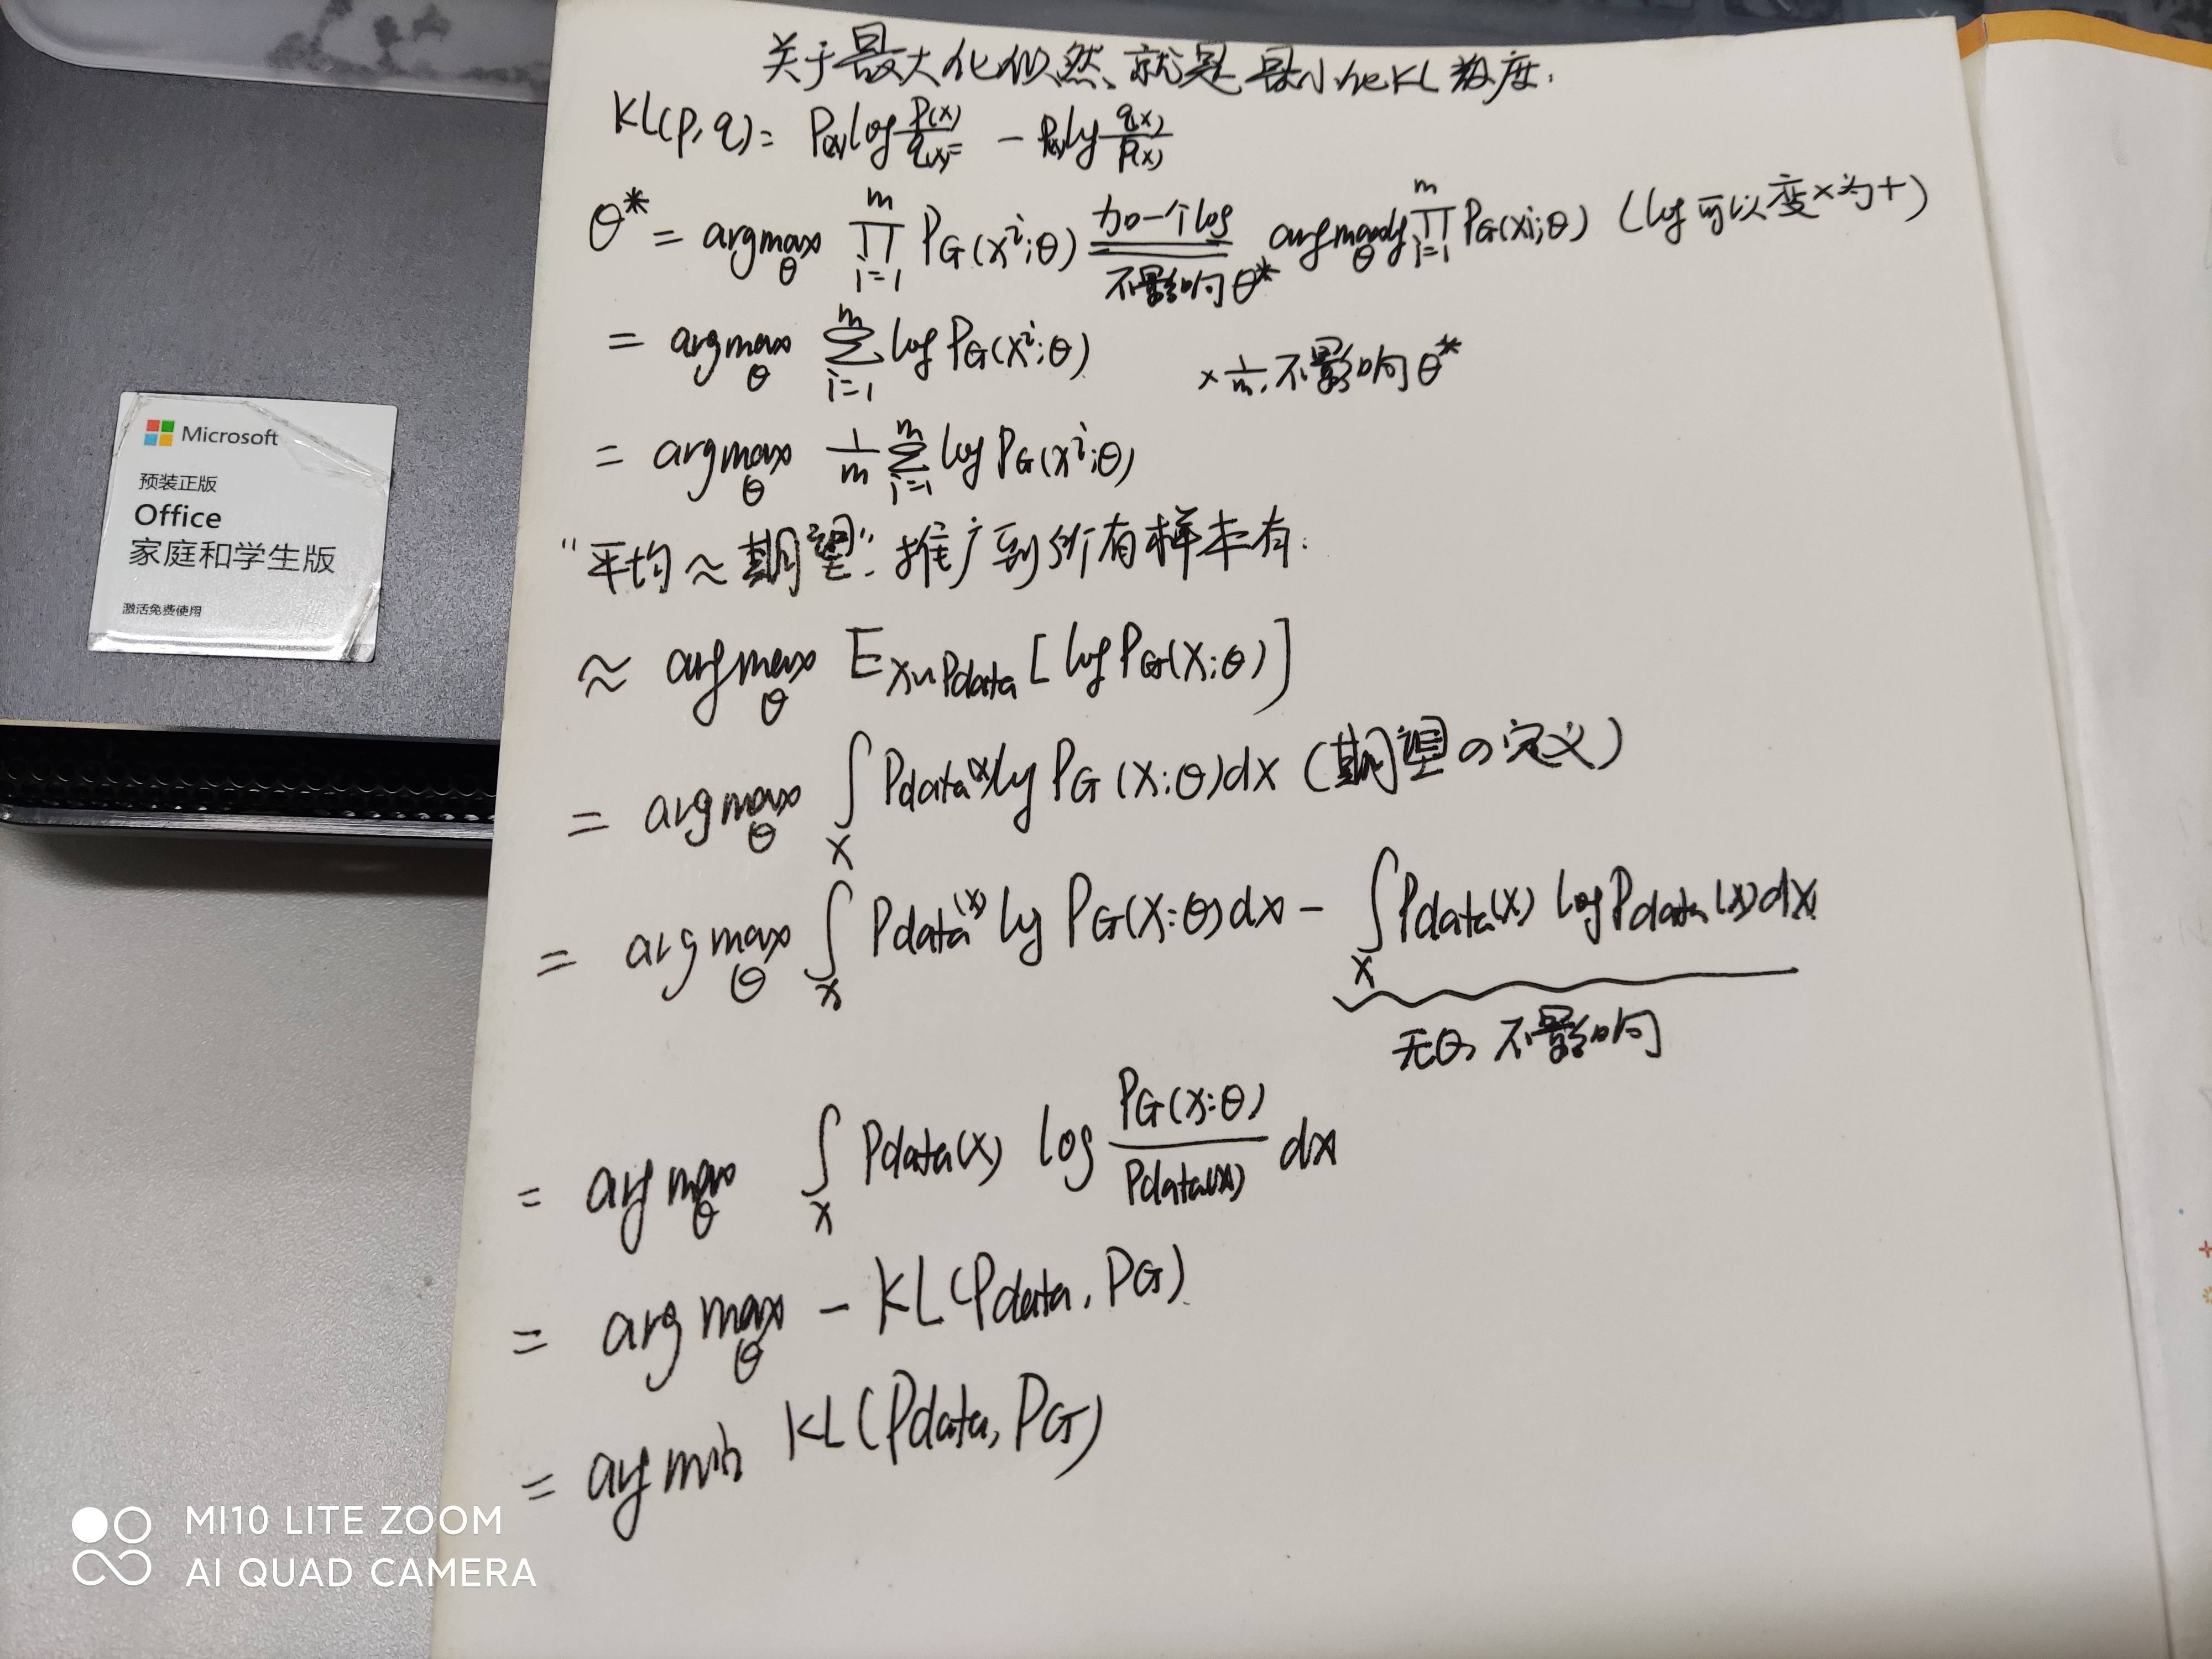 关于最大化似然,就是最小化KL散度.
KL(p,q)= P(x)log P(x)/q(x) = - P(x)log q(x)/P(x)
θ* = argmax_θ ∏_{i=1}^{m} P_G(x^i;θ) 加一个log 不影响θ* argmax_θ log ∏_{i=1}^{m} P_G(x^i;θ) (log可以变×为+)
= argmax_θ ∑_{i=1}^{m} log P_G(x^i;θ) × 1/m,不影响θ*
= argmax_θ 1/m ∑_{i=1}^{m} log P_G(x^i;θ)
"平均≈期望":推广到所有样本有:
≈ argmax_θ E_{x~Pdata}[log P_G(x;θ)]
= argmax_θ ∫_x Pdata(x) log P_G(x;θ)dx (期望の定义)
= argmax_θ ∫_x Pdata(x) log P_G(x;θ)dx - ∫_x Pdata(x) log Pdata(x)dx
无θ,不影响
= argmax_θ ∫_x Pdata(x) log P_G(x;θ)/Pdata(x) dx
= argmax_θ - KL(Pdata, PG)
= argmin KL(Pdata, PG)
Microsoft
预装正版
Office
家庭和学生版
激活免费使用
MI10 LITE ZOOM
AI QUAD CAMERA